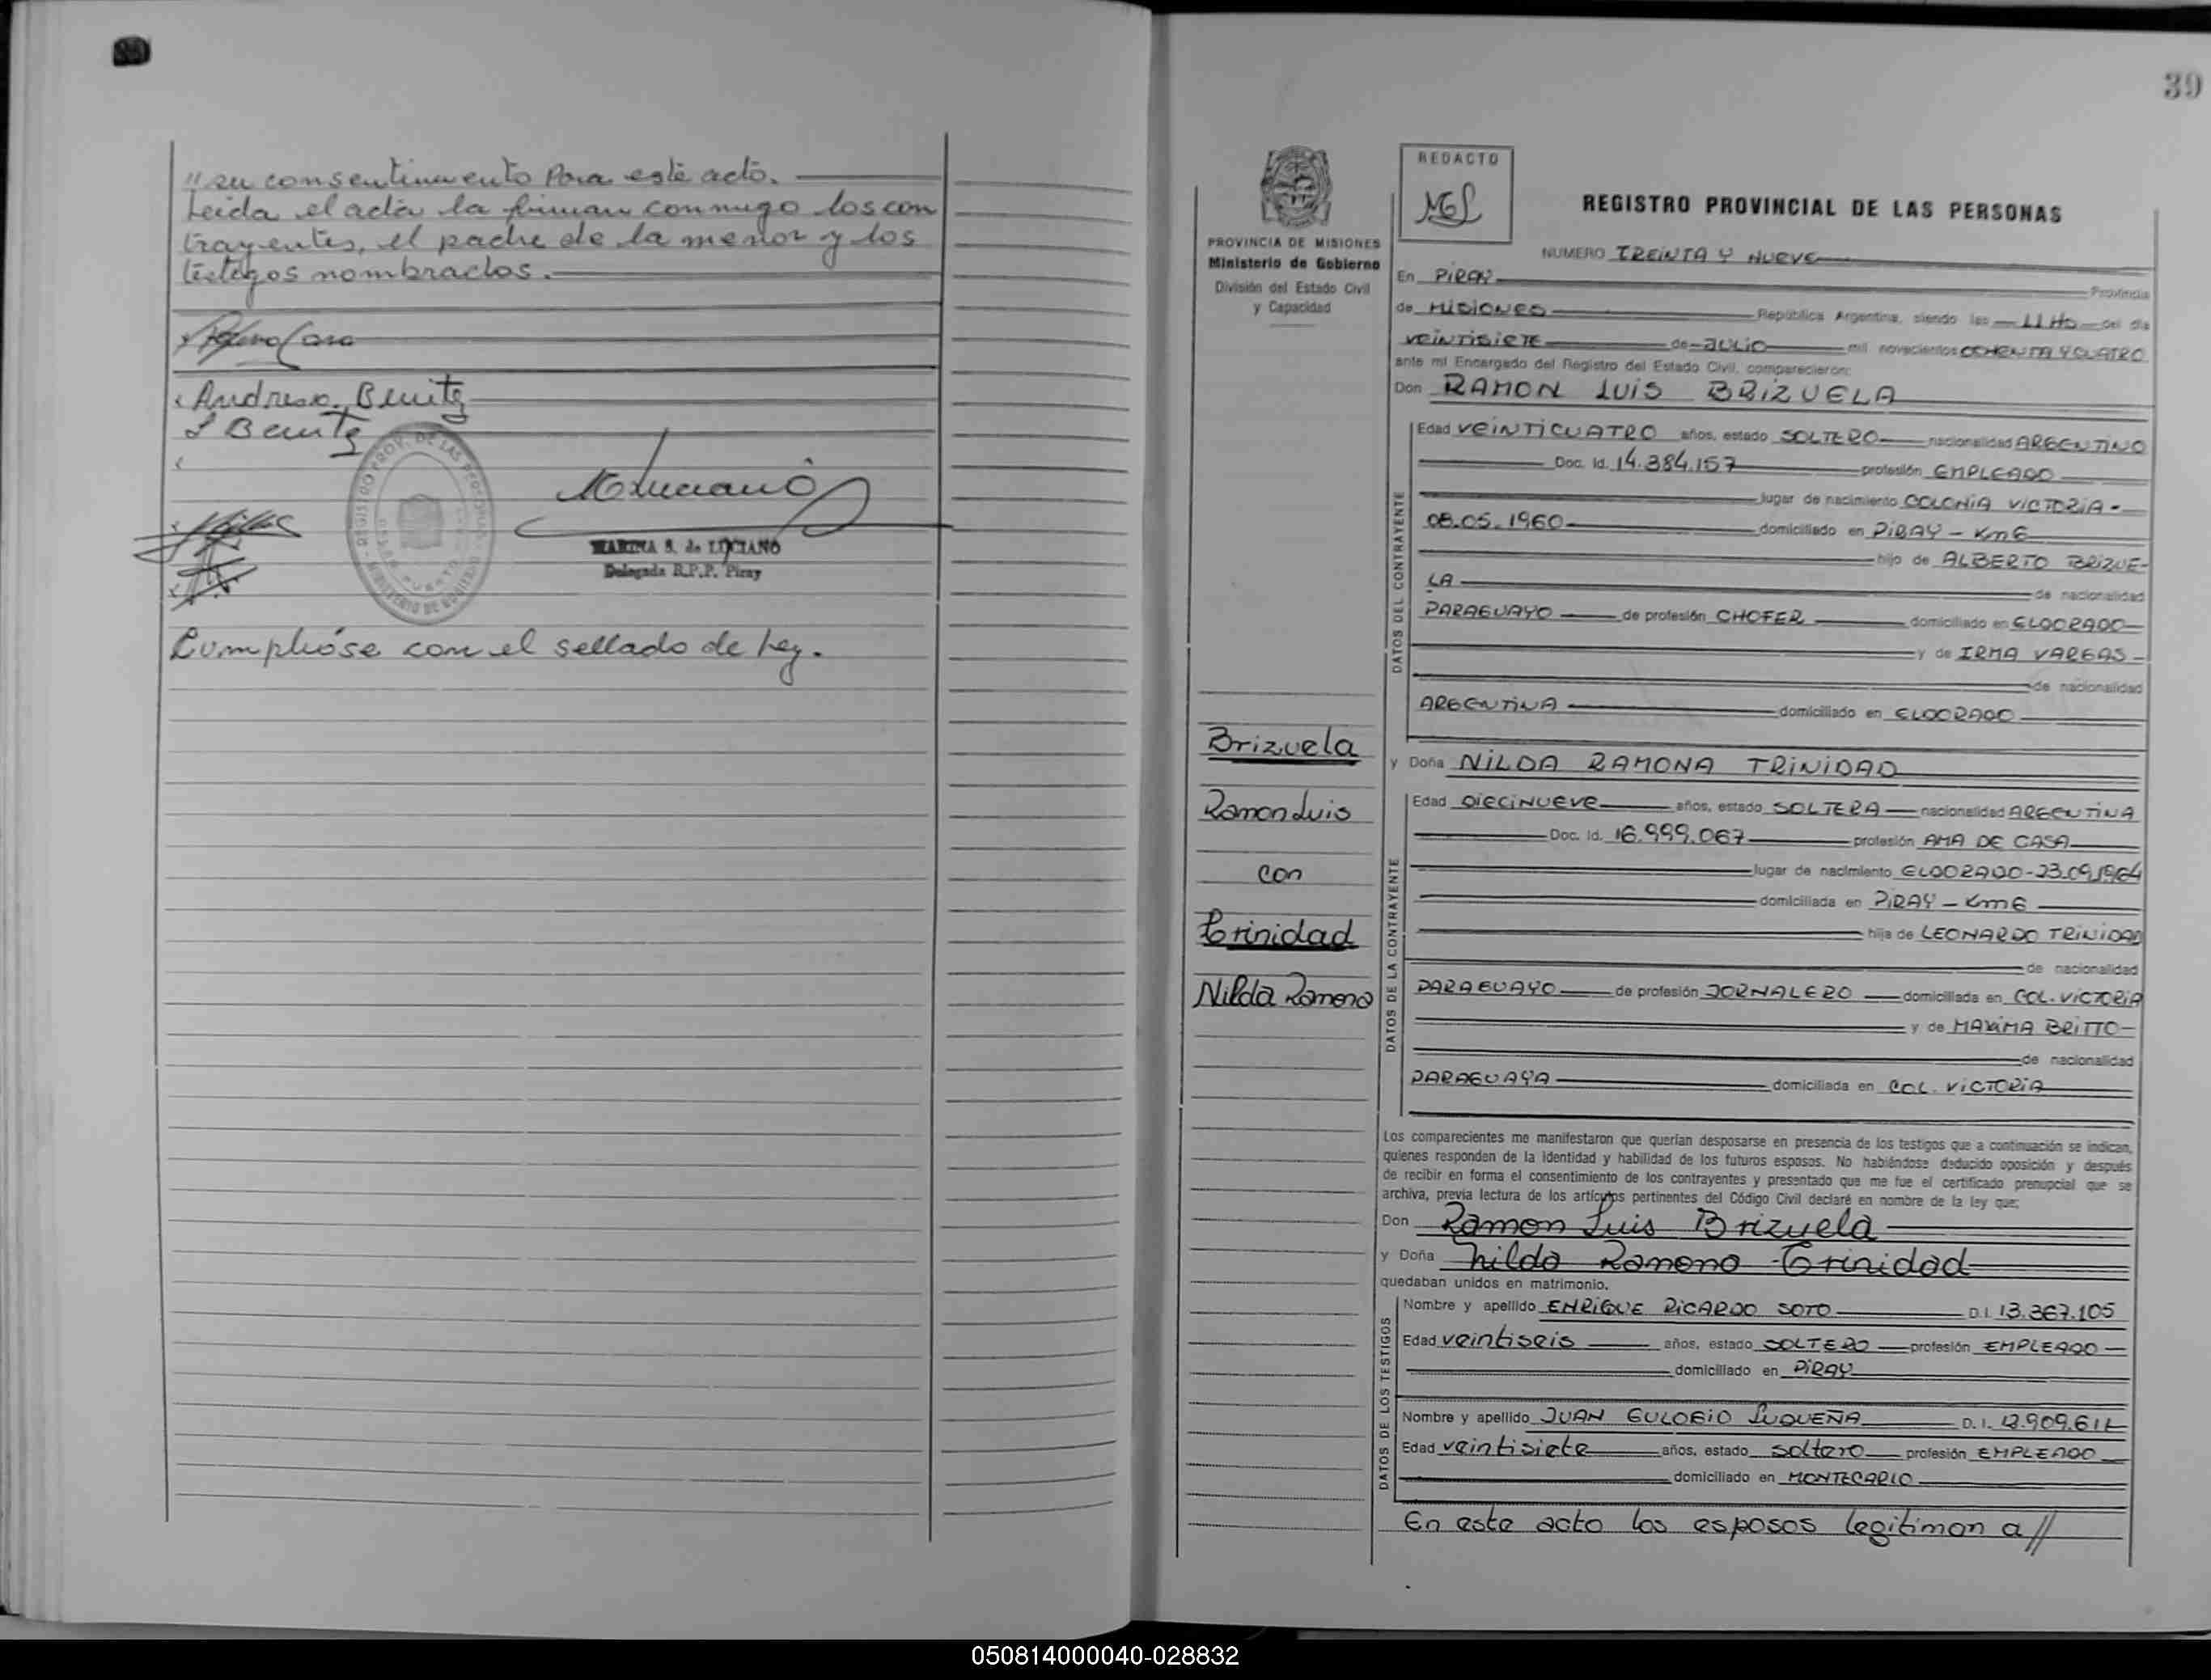 " su consentimiento Para este acto.
Leida el acta la firman conmigo los con
trayentes, el padre de la menor y los
testigos nombrados.
Andresa Benitez
Benitez
MARINA S. de LUCIANO
Delegada R.P.P. Piray
Cumplióse con el sellado de Ley.
39
REDACTO
REGISTRO PROVINCIAL DE LAS PERSONAS
PROVINCIA DE MISIONES
Ministerio de Gobierno
División del Estado Civil
y Capacidad
NUMERO TREINTA Y NUEVE
En PIRAY Provincia
de MISIONES República Argentina, siendo las 11 Hs del día
VEINTISIETE de JULIO mil novecientos OCHENTA Y CUATRO
ante mí Encargado del Registro del Estado Civil, comparecieron:
Don RAMON LUIS BRIZUELA
DATOS DEL CONTRAYENTE
Edad VEINTICUATRO años, estado SOLTERO nacionalidad ARGENTINO
Doc. Id. 14.384.157 profesión EMPLEADO
lugar de nacimiento COLONIA VICTORIA -
08.05.1960 domiciliado en PIRAY - Km 6
hijo de ALBERTO BRIZUE-
LA de nacionalidad
PARAGUAYO de profesión CHOFER domiciliado en ELDORADO
y de IRMA VARGAS
de nacionalidad
ARGENTINA domiciliado en ELDORADO
Brizuela
Ramon Luis
con
Trinidad
Nilda Ramona
y Doña NILDA RAMONA TRINIDAD
DATOS DE LA CONTRAYENTE
Edad DIECINUEVE años, estado SOLTERA nacionalidad ARGENTINA
Doc. Id. 16.999.067 profesión AMA DE CASA
lugar de nacimiento ELDORADO-23.09.1964
domiciliada en PIRAY - Km 6
hija de LEONARDO TRINIDAD
de nacionalidad
PARAGUAYO de profesión JORNALERO domiciliada en COL. VICTORIA
y de MAXIMA BRITTO
de nacionalidad
PARAGUAYA domiciliada en COL. VICTORIA
Los comparecientes me manifestaron que querían desposarse en presencia de los testigos que a continuación se indican,
quienes responden de la identidad y habilidad de los futuros esposos. No habiéndose deducido oposición y después
de recibir en forma el consentimiento de los contrayentes y presentado que me fue el certificado prenupcial que se
archiva, previa lectura de los artículos pertinentes del Código Civil declaré en nombre de la ley que:
Don Ramon Luis Brizuela
y Doña Nilda Ramona Trinidad
quedaban unidos en matrimonio.
DATOS DE LOS TESTIGOS
Nombre y apellido ENRIQUE RICARDO SOTO D.I. 13.367.105
Edad veintiseis años, estado SOLTERO profesión EMPLEADO
domiciliado en PIRAY
Nombre y apellido JUAN EULOGIO LUQUEÑA D.I. 12.909.611
Edad veintisiete años, estado soltero profesión EMPLEADO
domiciliado en MONTECARLO
En este acto los esposos legitiman a //
050814000040-028832